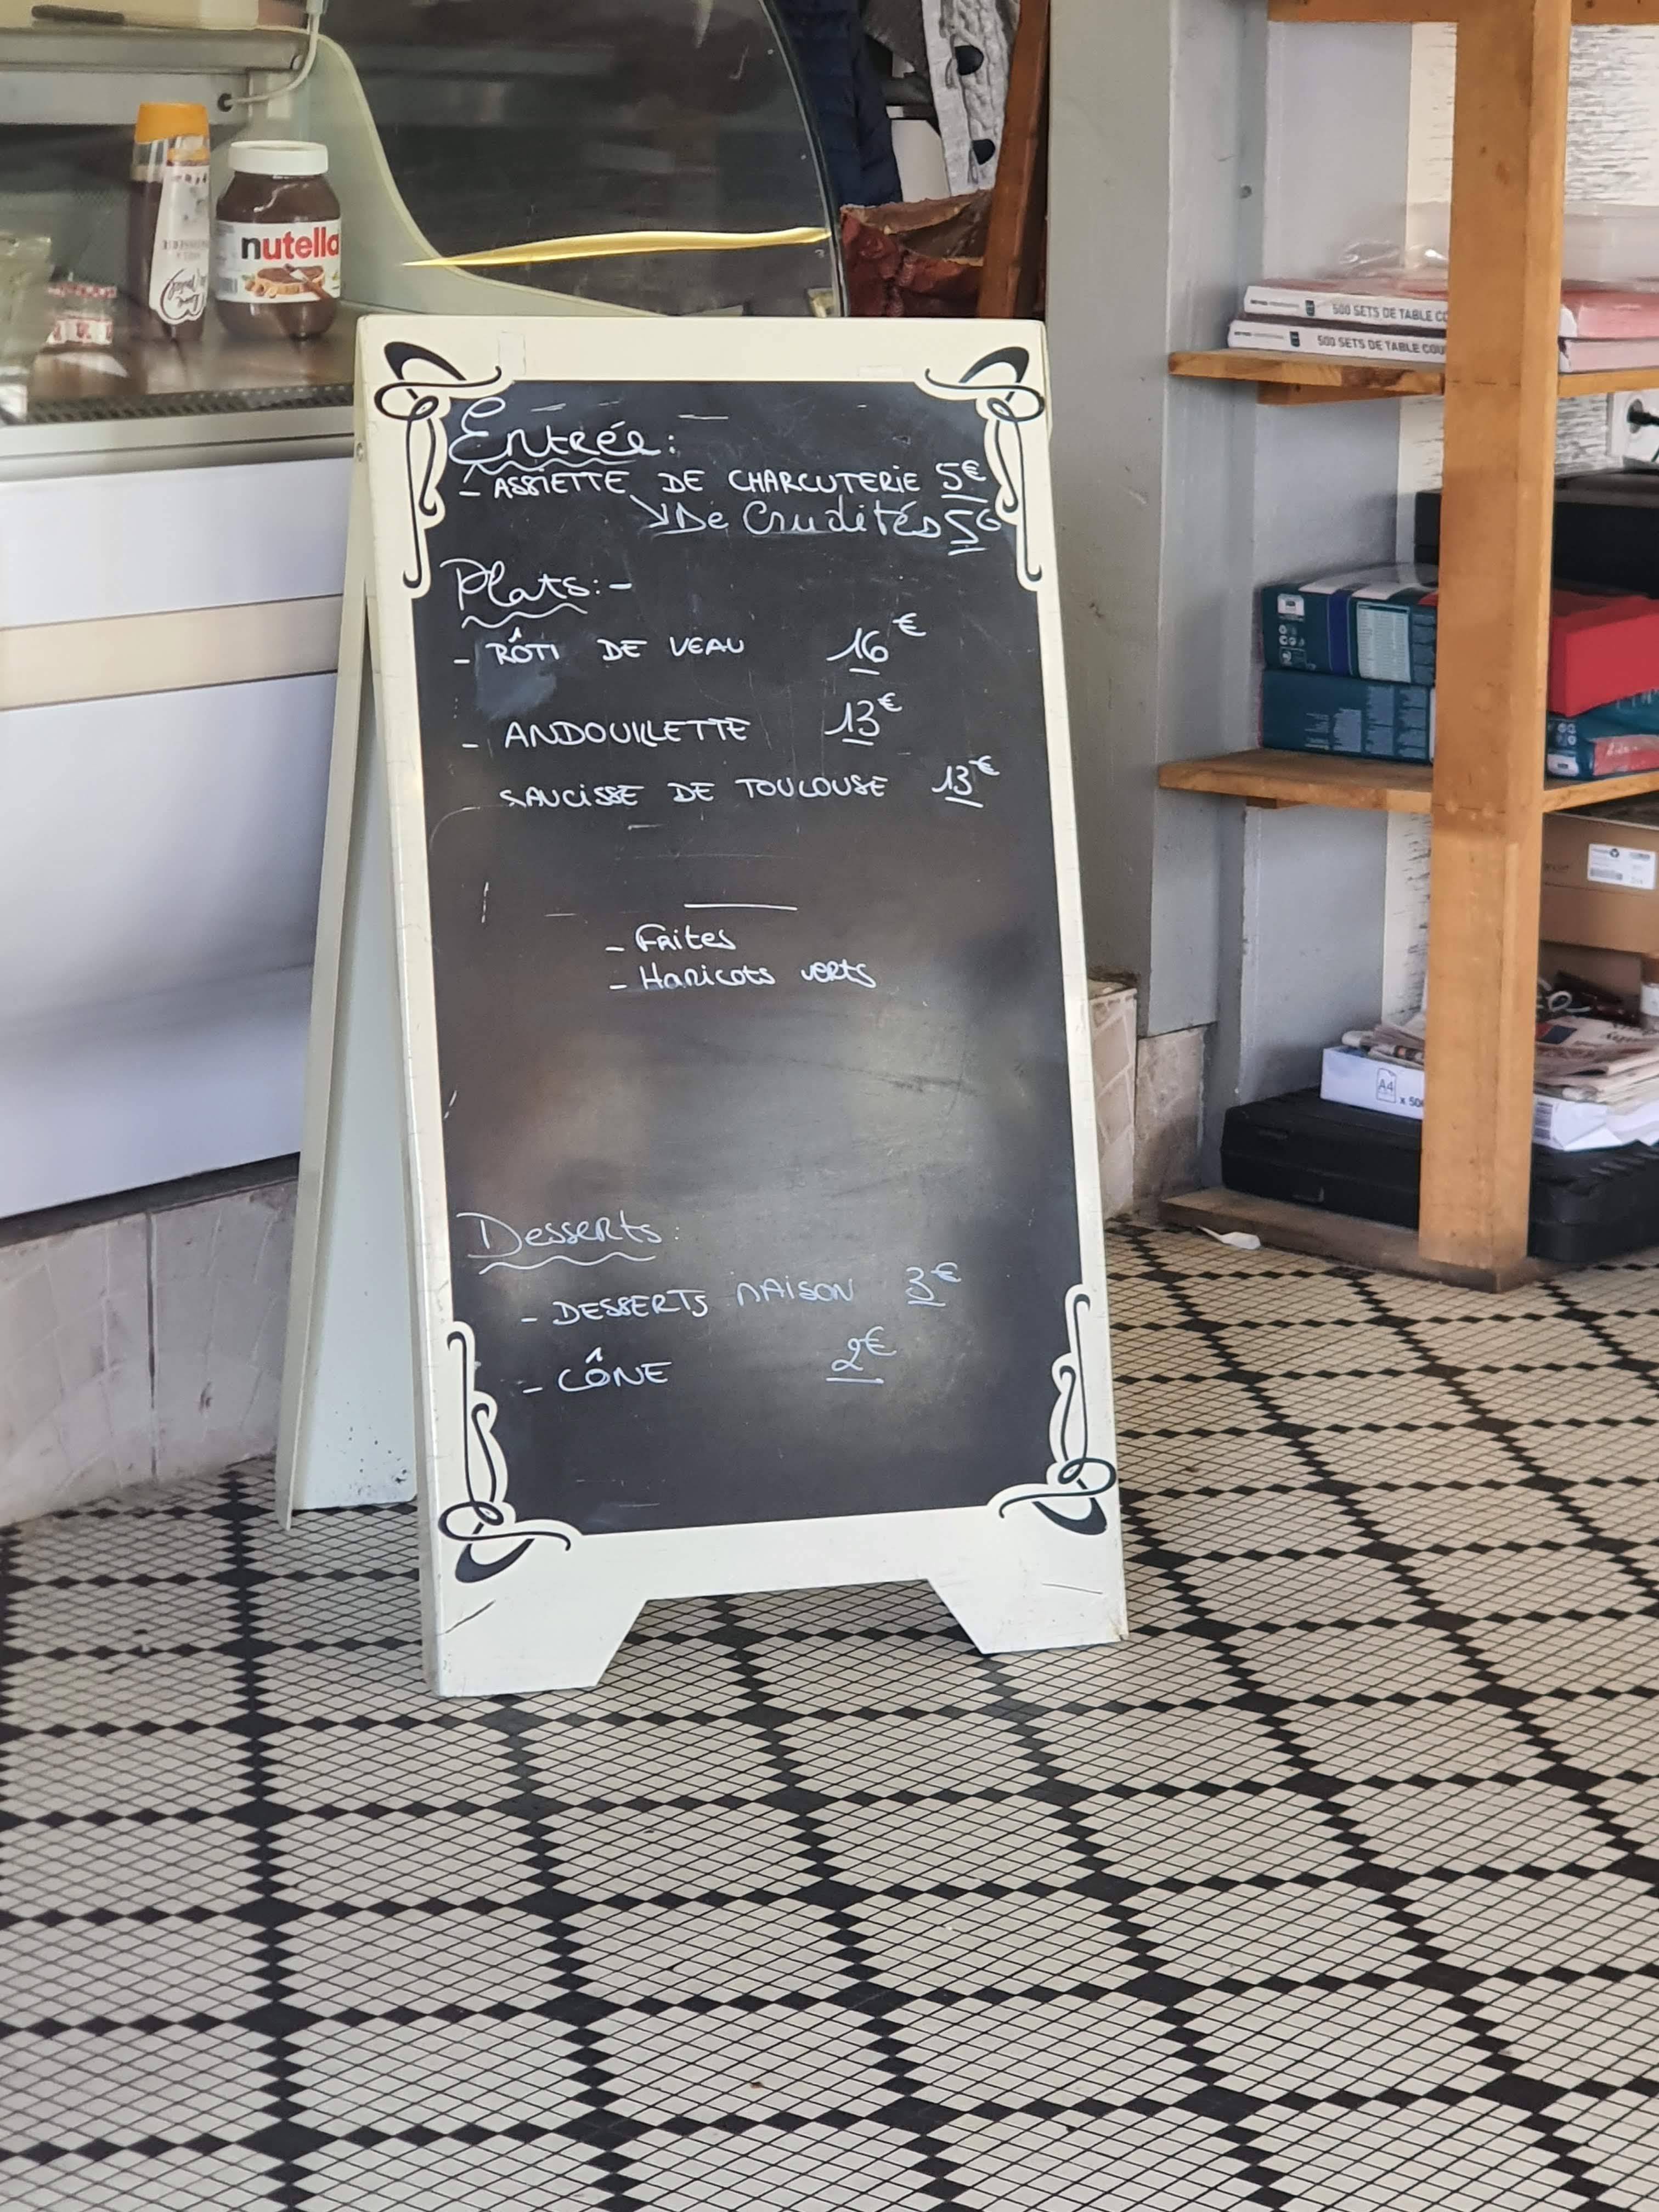 nutella
500 SETS DE TABLE CO
500 SETS DE TABLE COU
Entrée:
- ASSIETTE DE CHARCUTERIE 5€
↘De Crudités 5€
Plats:-
- RÔTI DE VEAU 16€
- ANDOUILLETTE 13€
SAUCISSE DE TOULOUSE 13€
- Frites
- Haricots verts
Desserts:
- DESSERTS MAISON 3€
- CÔNE 2€
A4
x 50